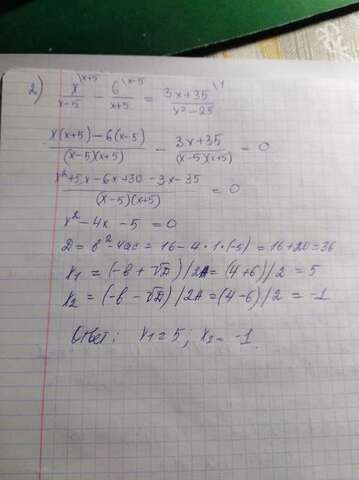 2) x/(x-5) \x+5 - 6/(x+5) \x-5 = (3x+35)/(x²-25) \1
(x(x+5)-6(x-5))/((x-5)(x+5)) - (3x+35)/((x-5)(x+5)) = 0
(x²+5x-6x+30-3x-35)/((x-5)(x+5)) = 0
x²-4x-5=0
D = b²-4ac = 16-4·1·(-5) = 16+20=36
x1 = (-b+√D)/2A = (4+6)/2 = 5
x2 = (-b-√D)/2A = (4-6)/2 = -1
Ответ: x1=5; x2=-1.